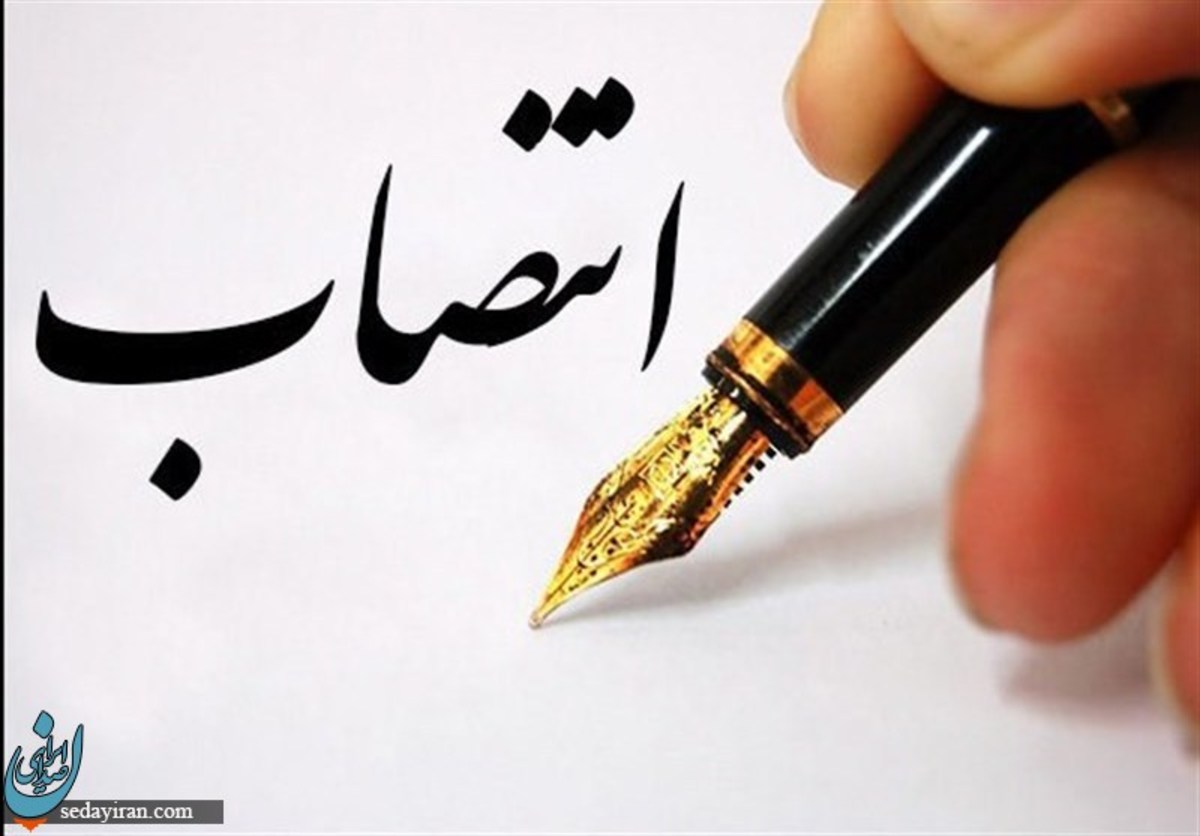 انتصاب
صدای ایران
sedayiran.com